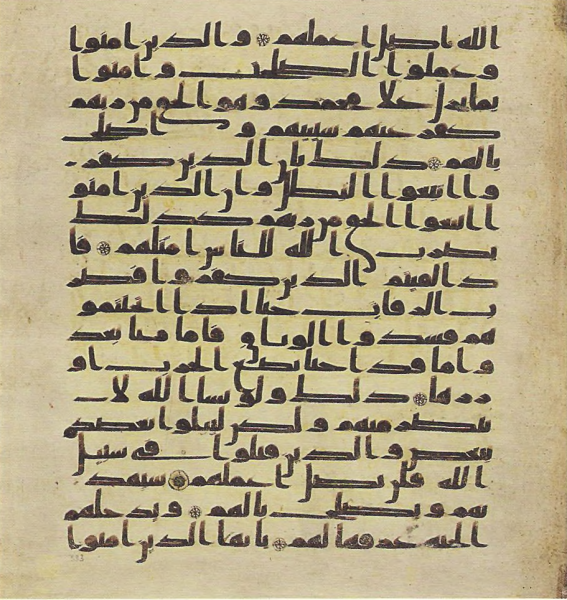 الله اضل اعملهم ۝ والذين امنوا
وعملوا الصلحت وامنوا
بما نزل علا محمد وهو الحق من ربهم
كفر عنهم سيتهم و اصلح
بالهم ۝ ذلك بان الذين كفر
وا اتبعوا البطل وان الذين امنو
ا اتبعوا الحق من ربهم كذلك
يضرب الله للناس امثلهم ۝ فا
ذا لقيتم الذين كفروا فضر
ب الرقاب حتا اذا اثخنتمو
هم فشدوا الوثاق فاما منا بعد
واما فدا حتا تضع الحرب او
زرها ۝ ذلك ولو يشا الله لا
نتصر منهم ولكن ليبلوا بعضكم
ببعض والذين قتلوا في سبيل
الله فلن يضل اعملهم ۝ سيهد
يهم ويصلح بالهم ۝ ويدخلهم
الجنه عرفها لهم ۝ يايها الذين امنوا